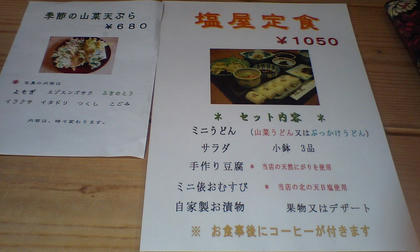 季節の山菜天ぷら
￥６８０
写真の内容は
よもぎ　エゾエンゴサク　ふきのとう
イラクサ　イタドリ　つくし　こごみ
内容は、時々変わります。
塩屋定食
￥1050
＊ セット内容 ＊
ミニうどん　（山菜うどん又はぶっかけうどん）
サラダ　　小鉢　3品
手作り豆腐　＊ 当店の天然にがりを使用
ミニ俵おむすび　＊ 当店の北の天日塩使用
自家製お漬物　　果物又はデザート
※ お食事後にコーヒーが付きます